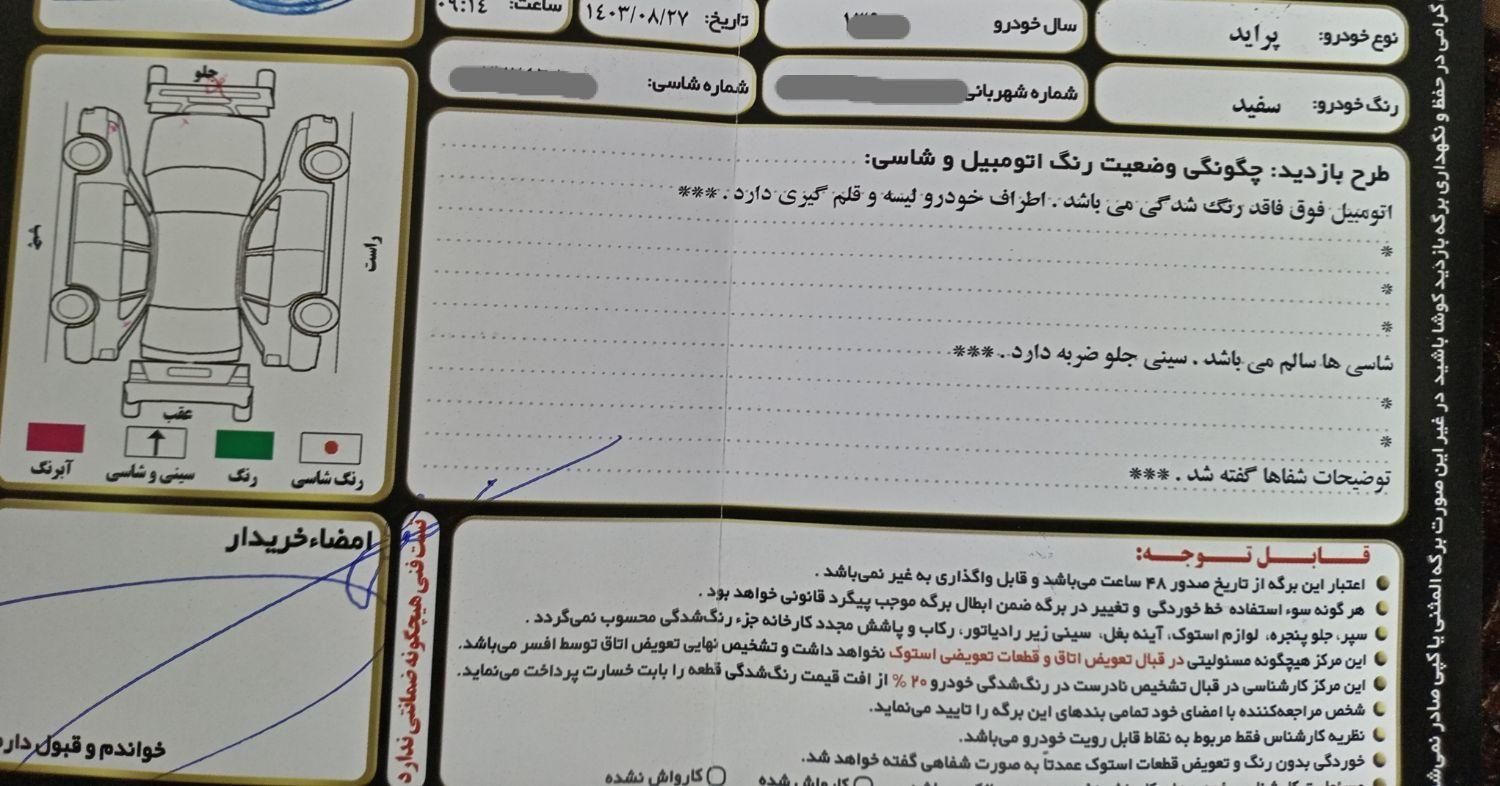 نوع خودرو: پراید
سال خودرو
تاریخ: ۱۴۰۳/۰۸/۲۷
ساعت: ۰۹:۱۴
رنگ خودرو: سفید
شماره شهربانی
شماره شاسی:
طرح بازدید: چگونگی وضعیت رنگ اتومبیل و شاسی:
اتومبیل فوق فاقد رنگ شدگی می باشد . اطراف خودرو لیسه و قلم گیری دارد . ***
*
*
*
شاسی ها سالم می باشد . سینی جلو ضربه دارد . ***
*
*
توضیحات شفاها گفته شد . ***
جلو
راست
عقب
رنگ شاسی
رنگ
سینی و شاسی
آبرنگ
قابل توجه:
اعتبار این برگه از تاریخ صدور ۴۸ ساعت می‌باشد و قابل واگذاری به غیر نمی‌باشد .
هر گونه سوء استفاده خط خوردگی و تغییر در برگه ضمن ابطال برگه موجب پیگرد قانونی خواهد بود .
سپر، جلو پنجره، لوازم استوک، آینه بغل، سینی زیر رادیاتور، رکاب و پاشش مجدد کارخانه جزء رنگ‌شدگی محسوب نمی‌گردد .
این مرکز هیچگونه مسئولیتی در قبال تعویض اتاق و قطعات تعویضی استوک نخواهد داشت و تشخیص نهایی تعویض اتاق توسط افسر می‌باشد.
این مرکز کارشناسی در قبال تشخیص نادرست در رنگ‌شدگی خودرو ۲۰ % از افت قیمت رنگ‌شدگی قطعه را بابت خسارت پرداخت می‌نماید.
شخص مراجعه‌کننده با امضای خود تمامی بندهای این برگه را تایید می‌نماید.
نظریه کارشناس فقط مربوط به نقاط قابل رویت خودرو می‌باشد.
خوردگی بدون رنگ و تعویض قطعات استوک عمدتاً به صورت شفاهی گفته خواهد شد.
کارواش شده
کارواش نشده
امضاء خریدار
خواندم و قبول دارم
تست فنی هیچگونه ضمانتی ندارد
گرامی در حفظ و نگهداری برگه بازدید کوشا باشید در غیر این صورت برگه المثنی یا کپی صادر نمی‌ش